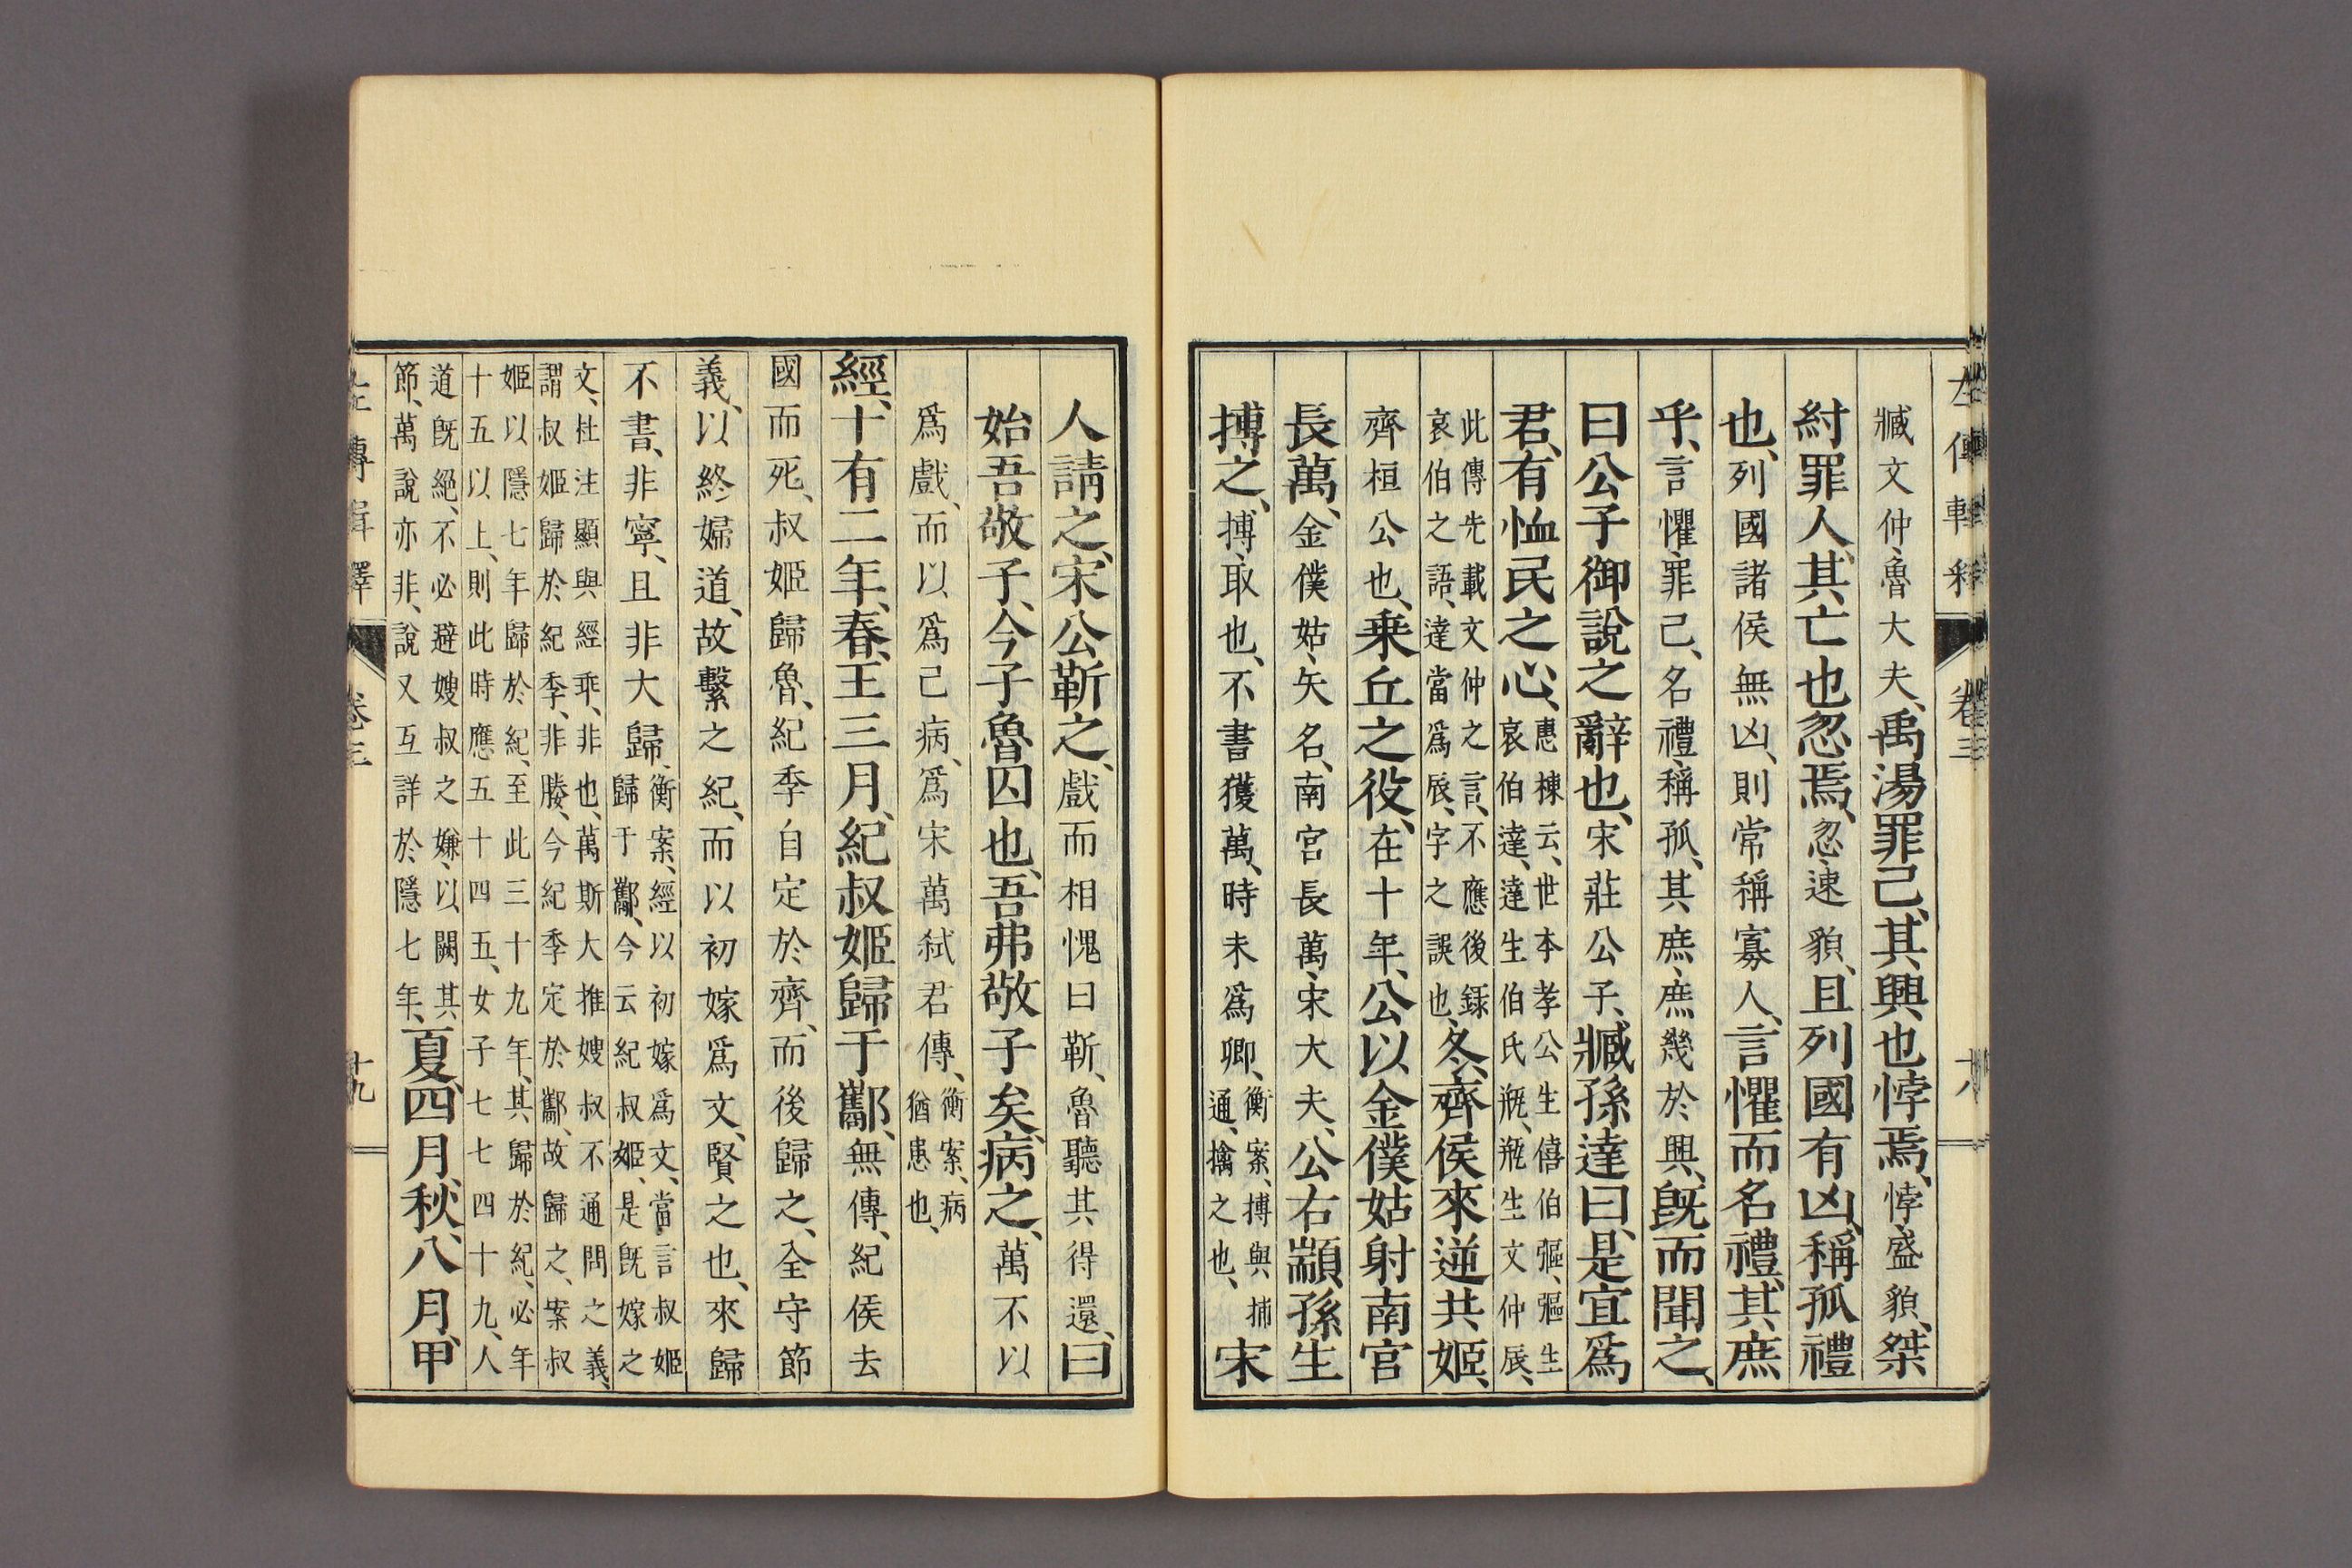 臧文仲、魯大夫、禹湯罪己、其興也悖焉、悖盛貌、桀
紂罪人、其亡也忽焉、忽速貌、且列國有凶、稱孤禮
也、列國諸侯無凶、則常稱寡人、言懼而名禮、其庶
乎、言懼罪己、名禮稱孤、其庶、庶幾於興、旣而聞之、
曰公子御說之辭也、宋莊公子、臧孫達曰、是宜爲
君、有恤民之心、惠棟云、世本孝公生僖伯彄、彄生
哀伯達、達生伯氏瓶、瓶生文仲辰、
此傳先載文仲之言、不應後錄
哀伯之語、達當爲辰、字之誤也、冬、齊侯來逆共姬、
齊桓公也、乗丘之役、在十年、公以金僕姑射南宮
長萬、金僕姑、矢名、南宮長萬、宋大夫、公右歂孫生
搏之、搏、取也、不書獲萬、時未爲卿、衡案、搏與捕
通、擒之也、宋
人請之、宋公靳之、戲而相愧曰靳、魯聽其得還、曰
始吾敬子、今子魯囚也、吾弗敬子矣、病之、萬不以
爲戲、而以爲己病、爲宋萬弑君傳、衡案、病
猶患也、
經、十有二年、春、王三月、紀叔姬歸于酅、無傳、紀侯去
國而死、叔姬歸魯、紀季自定於齊、而後歸之、全守節
義、以終婦道、故繫之紀、而以初嫁爲文、賢之也、來歸
不書、非寧、且非大歸、衡案、經以初嫁爲文、當言叔姬
歸于酅、今云紀叔姬、是旣嫁之
文、杜注顯與經乖、非也、萬斯大推嫂叔不通問之義、
謂叔姬歸於紀季、非媵、今紀季定於酅、故歸之、案叔
姬以隱七年歸於紀、至此三十九年、其歸於紀、必年
十五以上、則此時應五十四五、女子七七四十九、人
道旣絕、不必避嫂叔之嫌、以闕其
節、萬說亦非、說又互詳於隱七年、夏、四月、秋、八月、甲
左傳輯釋 卷三 十九